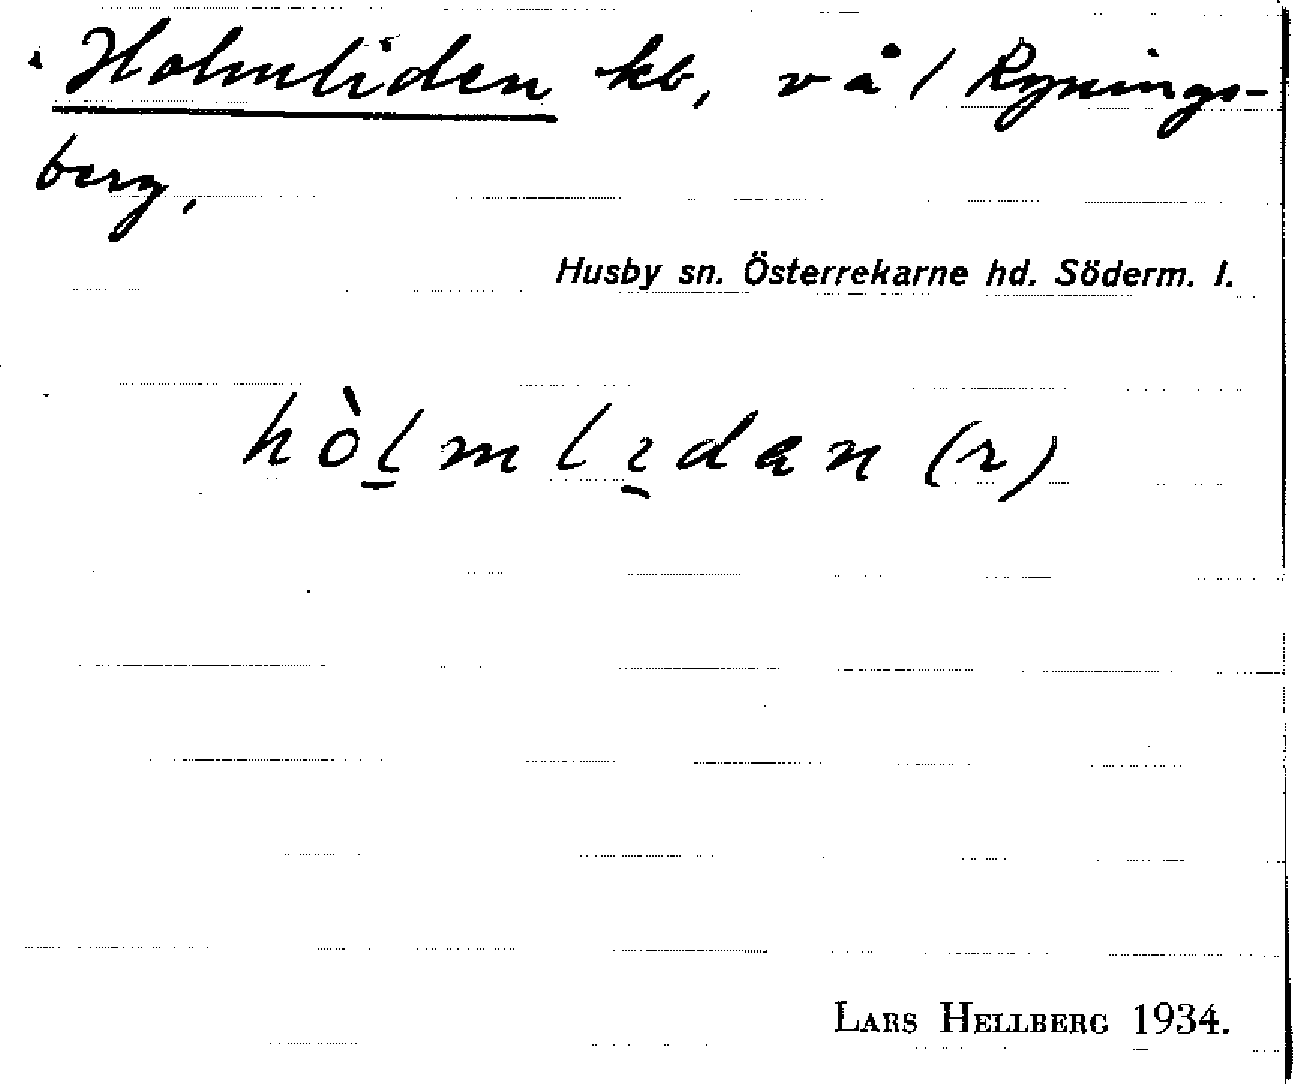 Holmliden kb, v å / Rynings-
berg.
Husby sn. Österrekarne hd. Söderm. l.
hòl̠mlı̠dan (r)
LARS HELLBERG 1934.